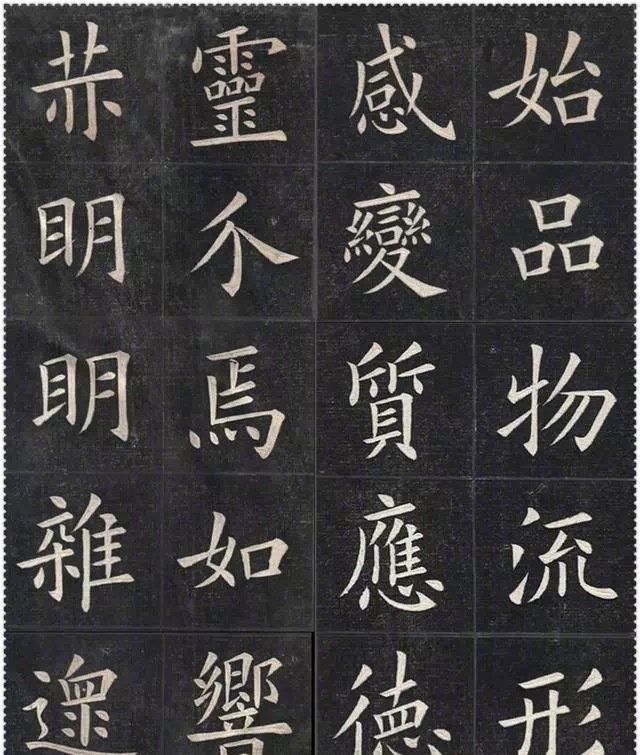 始品物流形
感變質應德
靈介焉如響
明明雜遝